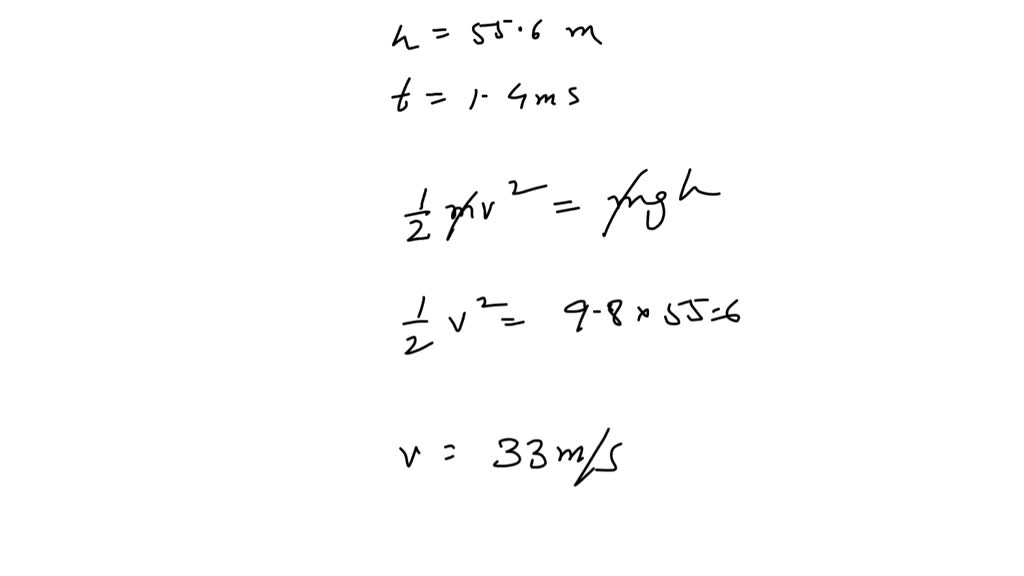 h = 55.6 m
t = 1.4 ms
1/2 mv² = mgh
1/2 v² = 9.8 × 55.6
v = 33 m/s